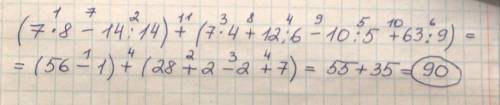 (7·8 - 14:14) + (7·4 + 12:6 - 10:5 + 63:9) =
1 7 2 11 3 8 4 9 5 10 6
= (56 - 1) + (28 + 2 - 2 + 7) = 55 + 35 = 90
1 4 2 3 4